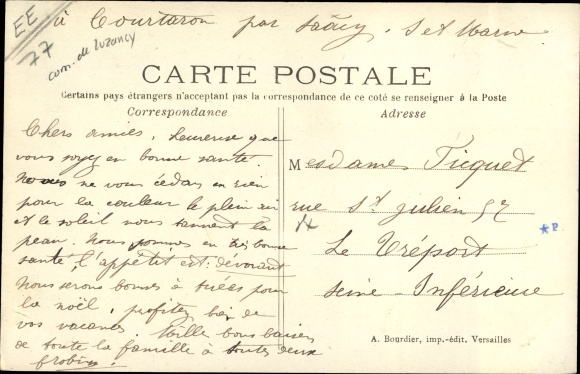 EE
77
com. de Luzancy
à Courtaron par Saâcy. S et Marne
CARTE POSTALE
Certains pays étrangers n'acceptant pas la correspondance de ce coté se renseigner à la Poste
Correspondance
Adresse
Chers amies, heureuse que
vous soyez en bonne santé.
Nous ne vous cédons en rien
pour la couleur le plein air
et le soleil nous tannent la
peau. Nous sommes en très bonne
santé, l'appétit est: dévorant
Nous serons bonnes à tuées pour
la noël, profitez bien de
vos vacances. Mille bons baisers
de toute la famille à toutes deux
Mesdames Ticquet
rue St Julien 57
Le Tréport
Seine-Inférieure
*P.
A. Bourdier, imp.-édit. Versailles